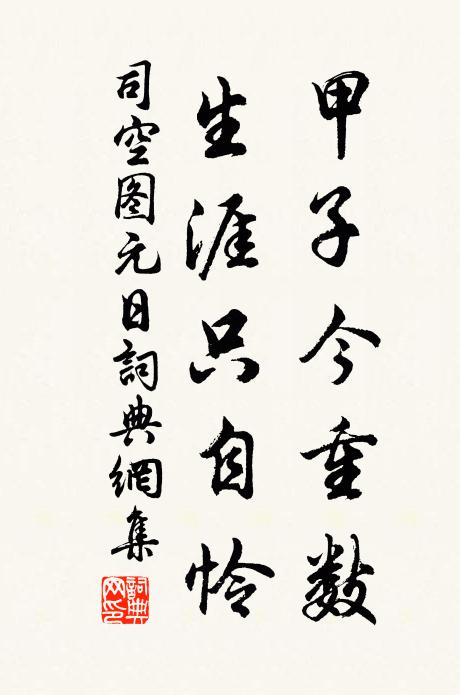 甲子今重数
生涯只自怜
司空图元日詞典網集
詞典網印